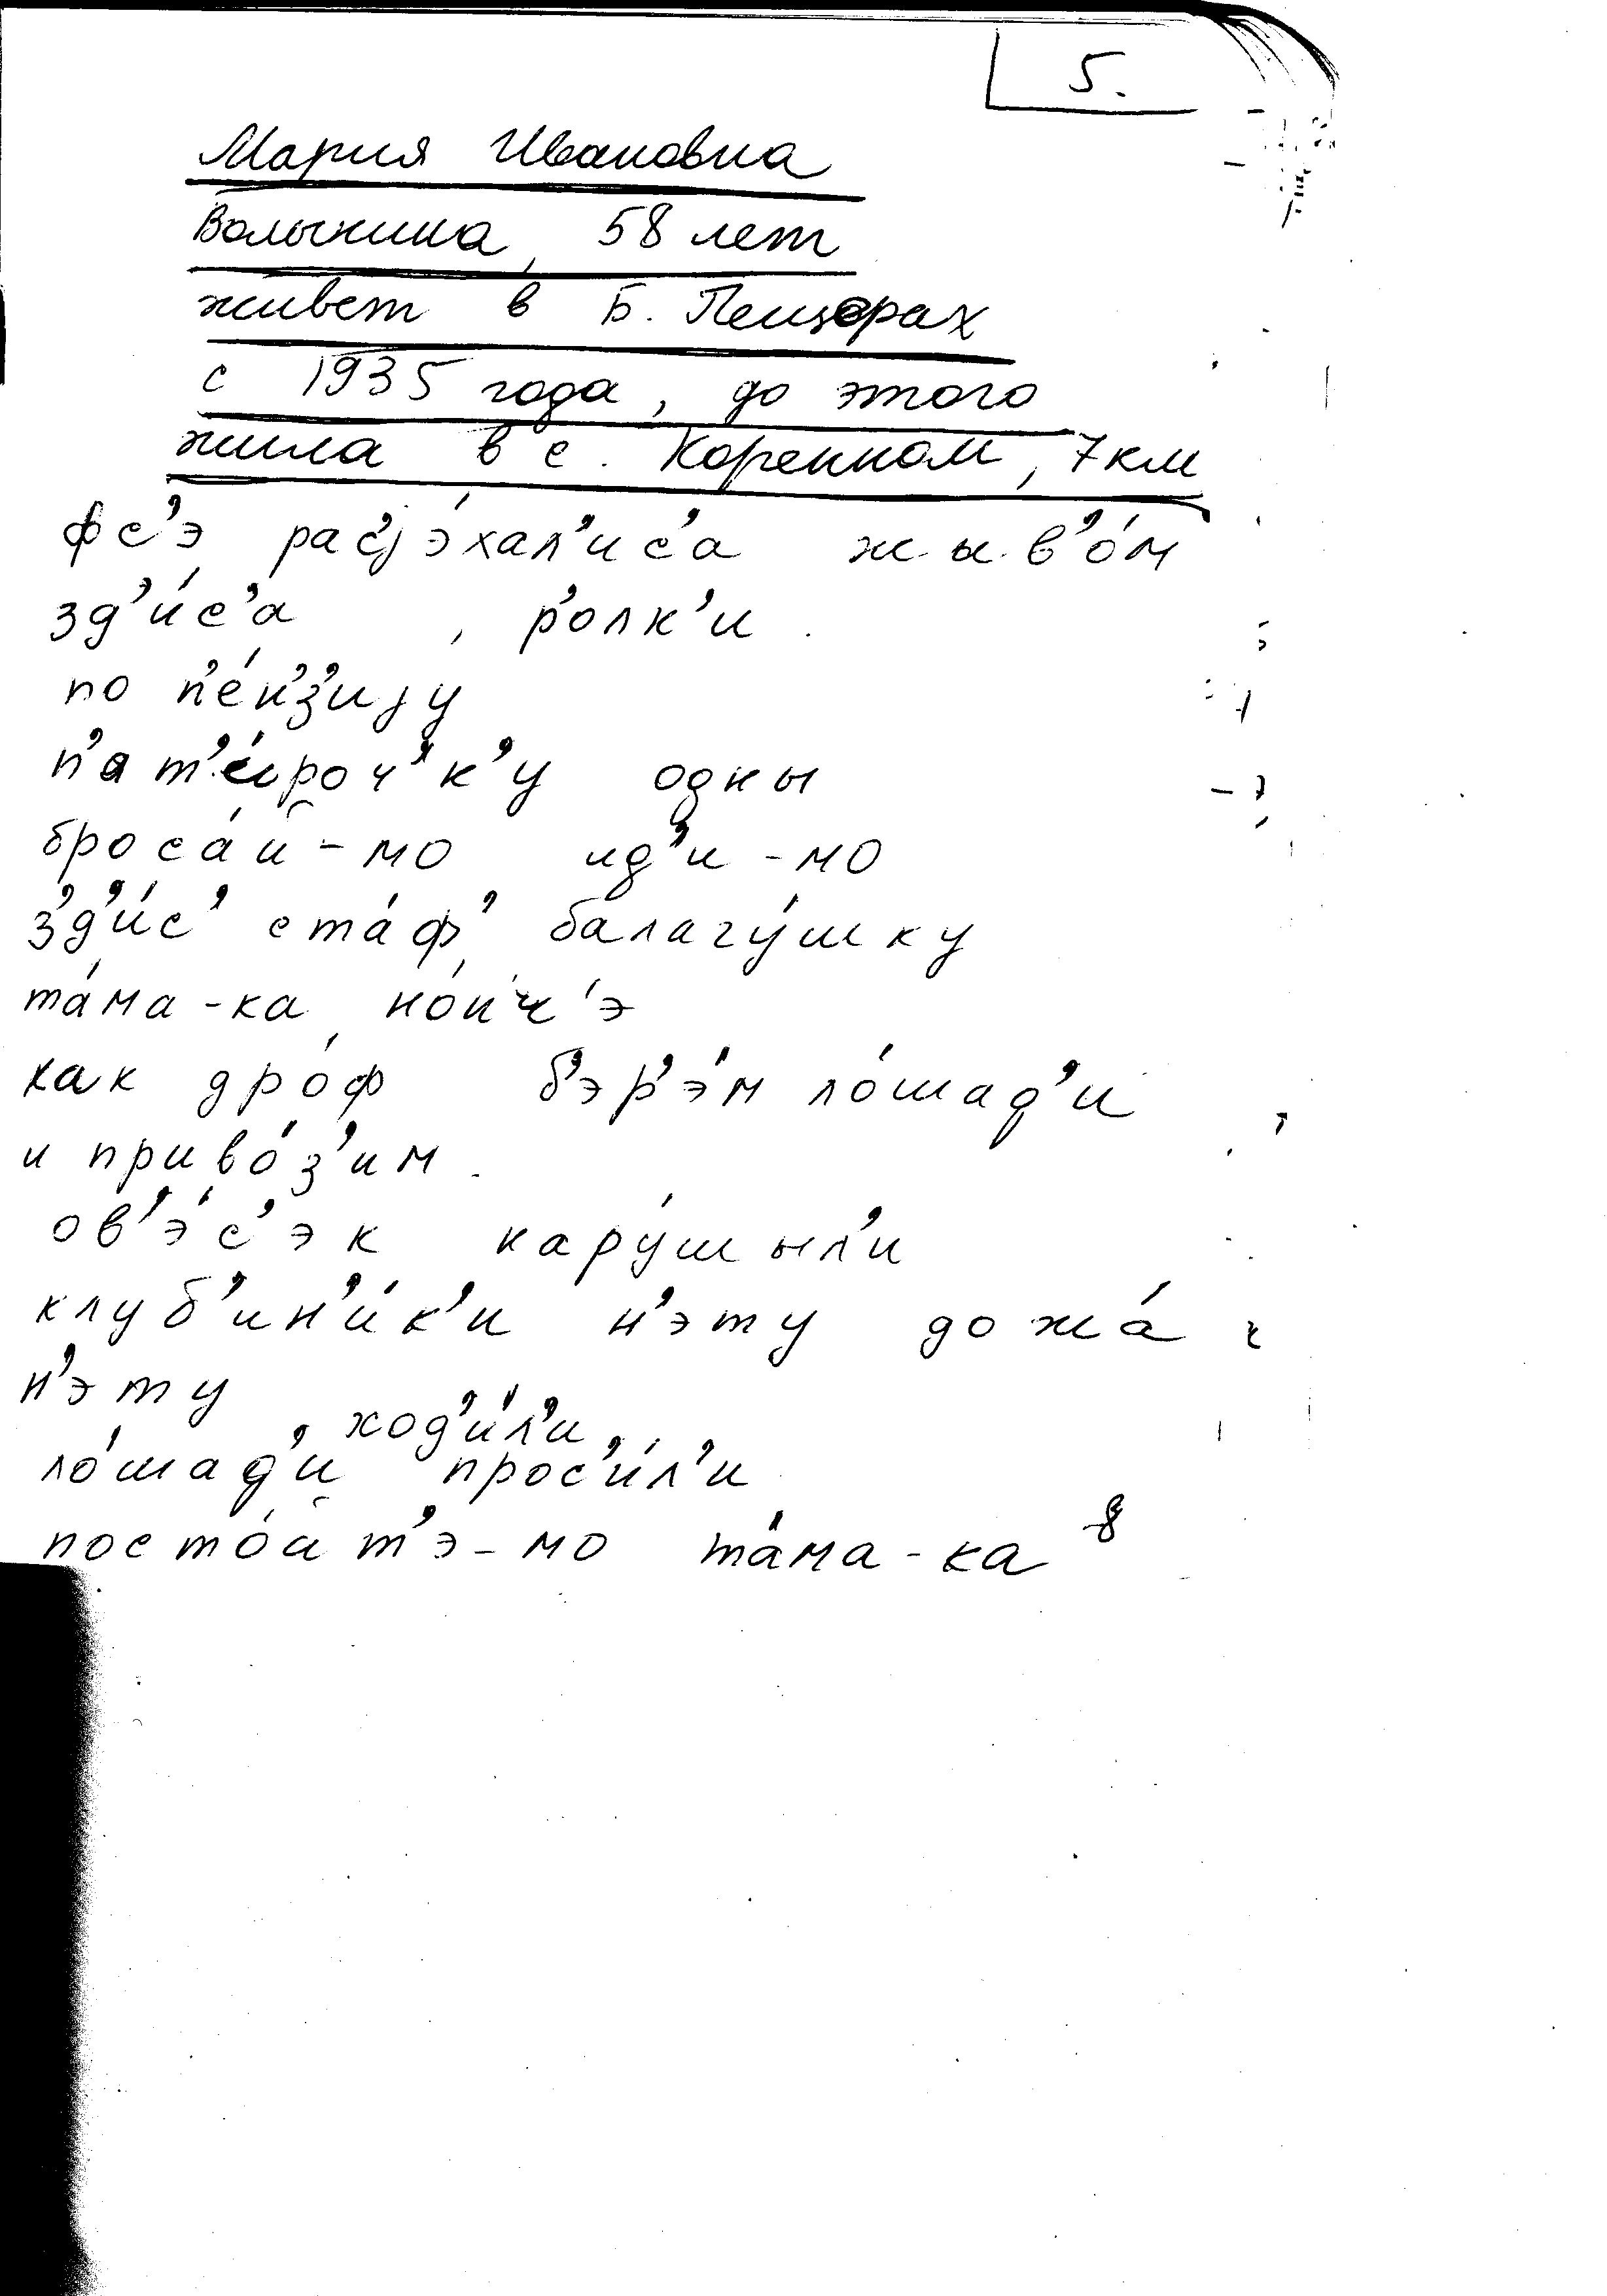 5.
Мария Ивановна
Волынина, 58 лет
живет в Б. Пещерах
с 1935 года, до этого
жила в с. Коренном, 7 км
фс’э рас’jэ́хал’ис’а жыв’о́м
зд’и́с’а , р’олк’и .
по п’е́н’з’иjу
п’ат’о́роч’к’у одны
броса́й-мо ид’и-мо
з’д’и́с’ ста́ф’ балагу́шку
та́ма-ка но́нч’э
как дро́ф б’эр’э́м ло́шад’и
и приво́з’им.
ов’э́с’эк нару́шыл’и
клуб’ин’и́к’и н’эту дожа́
н’эту , ход’и́л’и
ло́шад’и прос’и́л’и
посто́йт’э-мо та́ма-ка